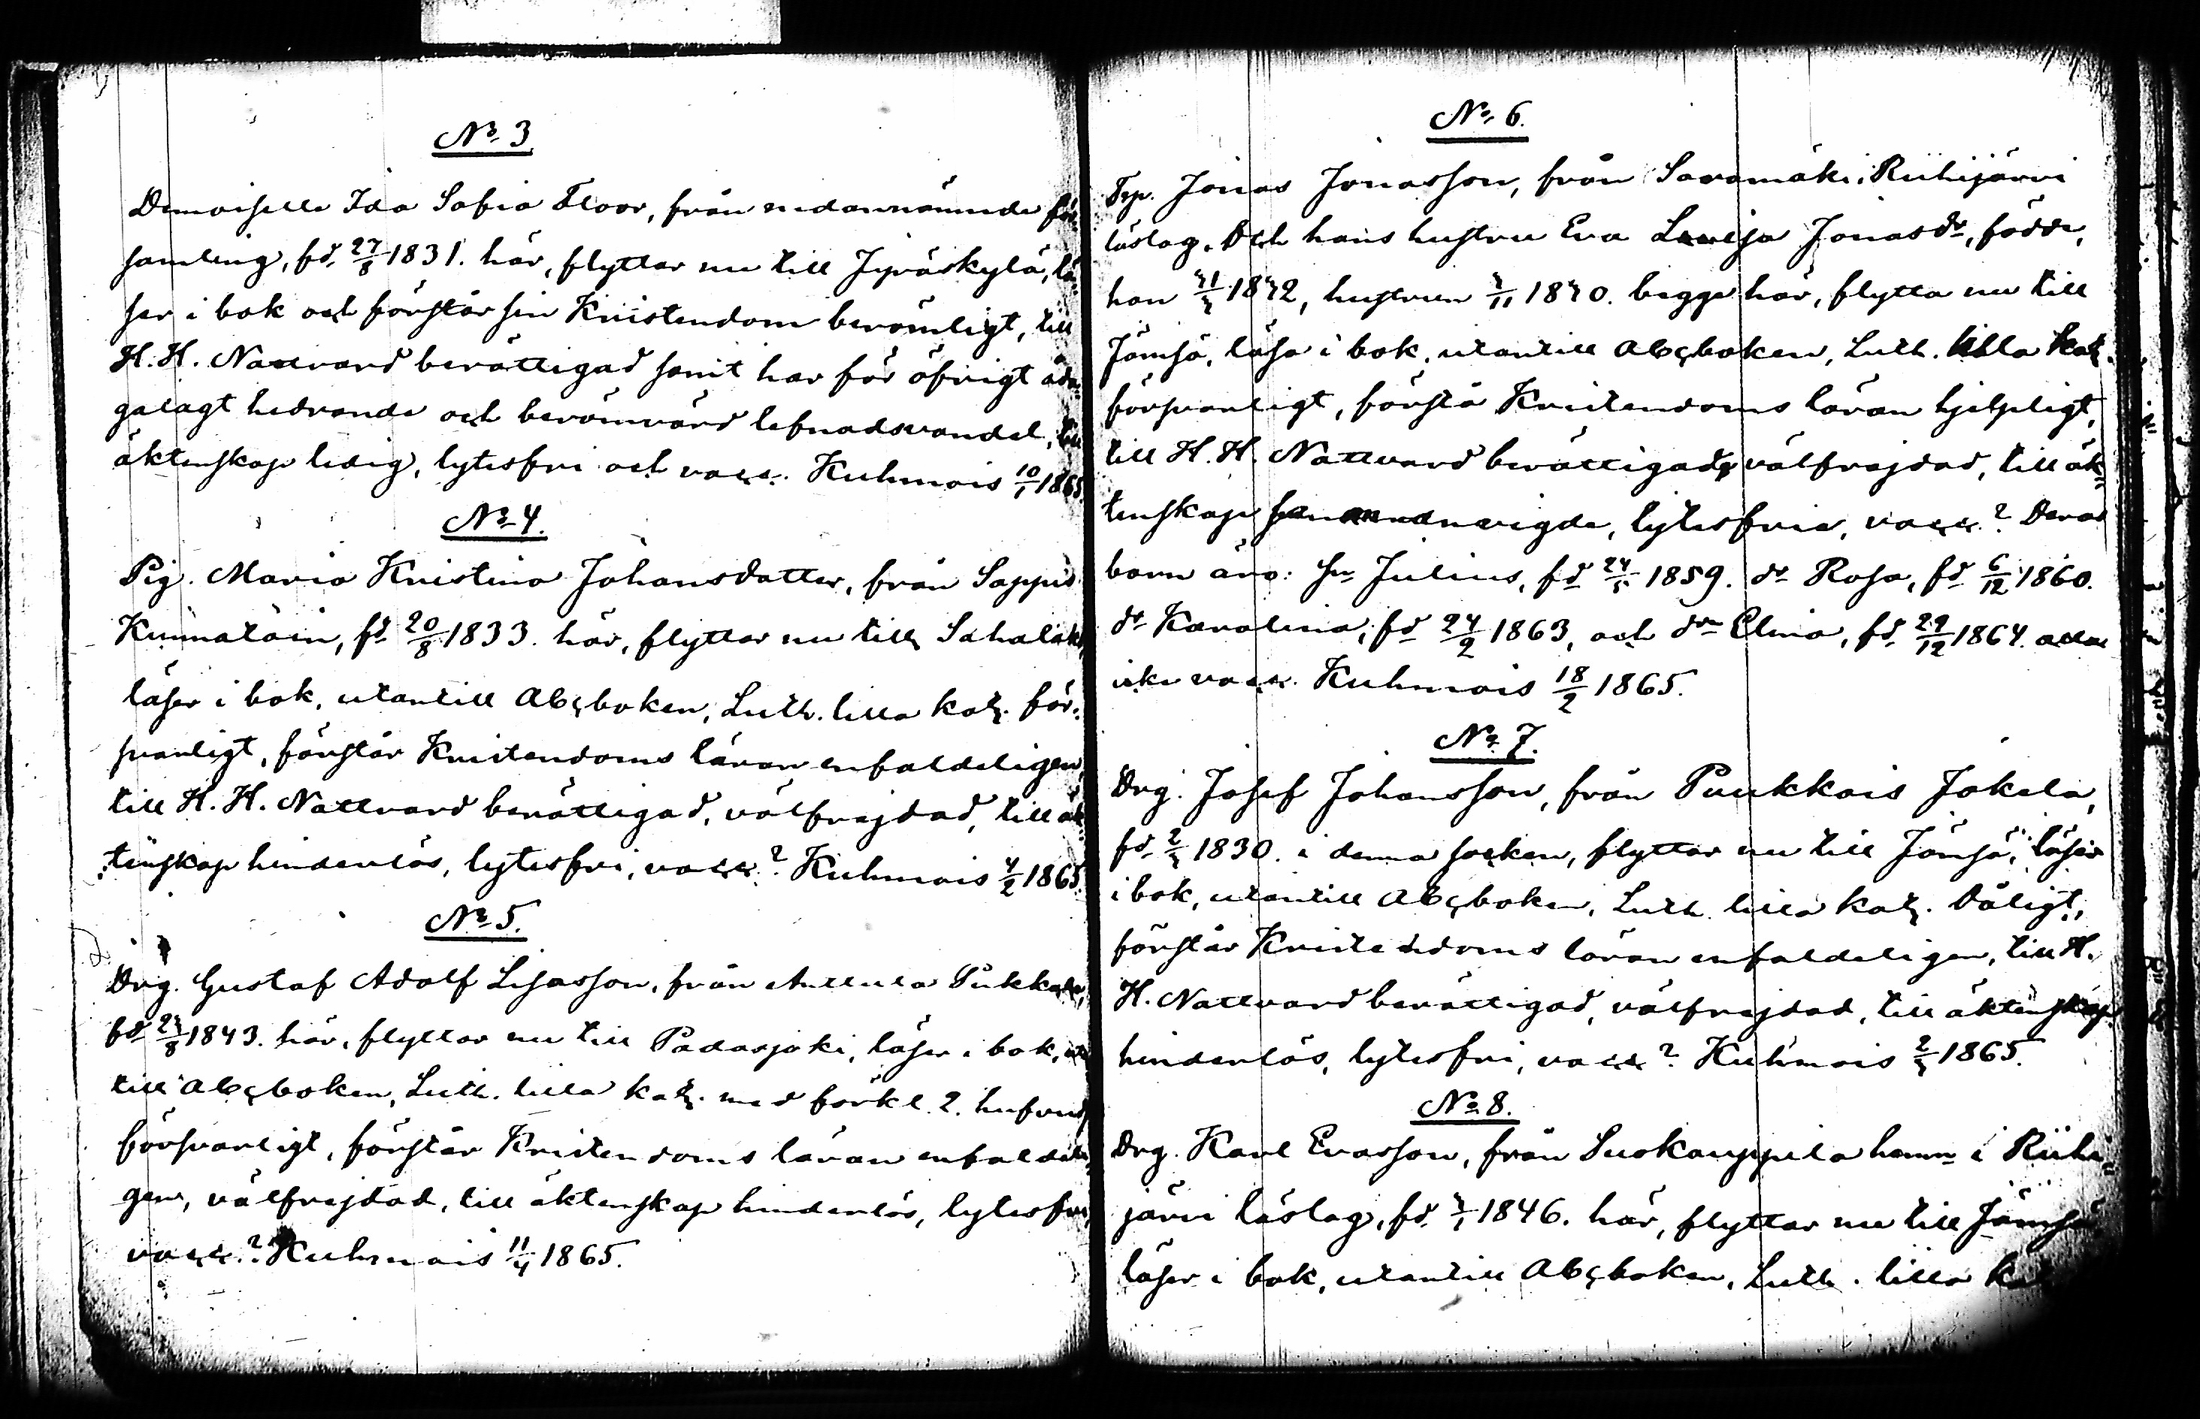 № 3
Demoiselle Ida Sofia Floor, från nedannämnde för-
samling, fd. 27/8 1831. här, flyttar nu till Jyväskylä, lä-
ser i bok och förstår sin Kristendom berömligt, till
H. H. Nattvard berättigad samt har för öfrigt åda-
galagt hedrande och berömvärd lefnadsvandel, till
äktenskap ledig, lytesfri och vacc. Kuhmois 10/1 1865.
№ 4.
Pig. Maria Kristina Johansdatter, från Sappis
Kumatoin, fd. 20/8 1833. här, flyttar nu till Sahalaks,
läser i bok, utantill Abcboken, Luth. lilla kat. för-
svarligt, förstår Kristendoms läran enfaldeligen,
till H. H. Nattvard berättigad, välfrejdad, till äk-
tenskap hinderlös, lytesfri, vacc.? Kuhmois 4/2 1865.
№ 5.
Drg. Gustaf Adolf Lisasson, från Anttula Pukkala,
fd 23/8 1843. här, flyttar nu till Padasjoki, läser i bok, utan
till Abcboken, Luth. lilla kat. med förkl. 2. hufvud
försvarligt, förstår Kristendoms läran enfaldeli-
gen, välfrejdad, till äktenskap hinderlös, lytesfri,
vacc.? Kuhmois 11/4 1865.
№ 6.
Trp. Jonas Jonasson, från Saramäki, Riihijärvi
läslag. Och hans hustru Eva Lovisa Jonasdr, födde,
han 1842, hustrun 1840. begge här, flytta nu till
Jämsä, läsa i bok, utantill Abcboken, Luth. lilla Kat.
försvarligt, förstå Kristendoms läran hjelpligt,
till H. H. Nattvard berättigade, välfrejdad, till äk-
tenskap sammanvigde, lytesfria, vacc.? Deras
barn äro: sn Julius, fd 24/5 1859. dr Rosa, fd 6/12 1860.
dr Karolina, fd 24/9 1863, och drn Elina, fd. 29/12 1864. alla
icke vacc. Kuhmois 18/2 1865.
№ 7.
Drg. Josef Johansson, från Puukkois Jokela,
fd. 2/3 1830. i denna socken, flyttar nu till Jämsä, läser
i bok, utantill Abcboken, Luth. lilla kat. Dåligt,
förstår Kristendoms läran enfaldeligen, till H.
H. Nattvard berättigad, välfrejdad, till äktenskap
hinderlös, lytesfri, vacc? Kuhmois 2/3 1865.
№ 8.
Drg. Karl Evasson, från Suokauppila hemn i Riihi-
järvi läslag, fd. 1846. här, flyttar nu till Jämsä
läser i bok, utantill Abcboken, Luth. lilla kat